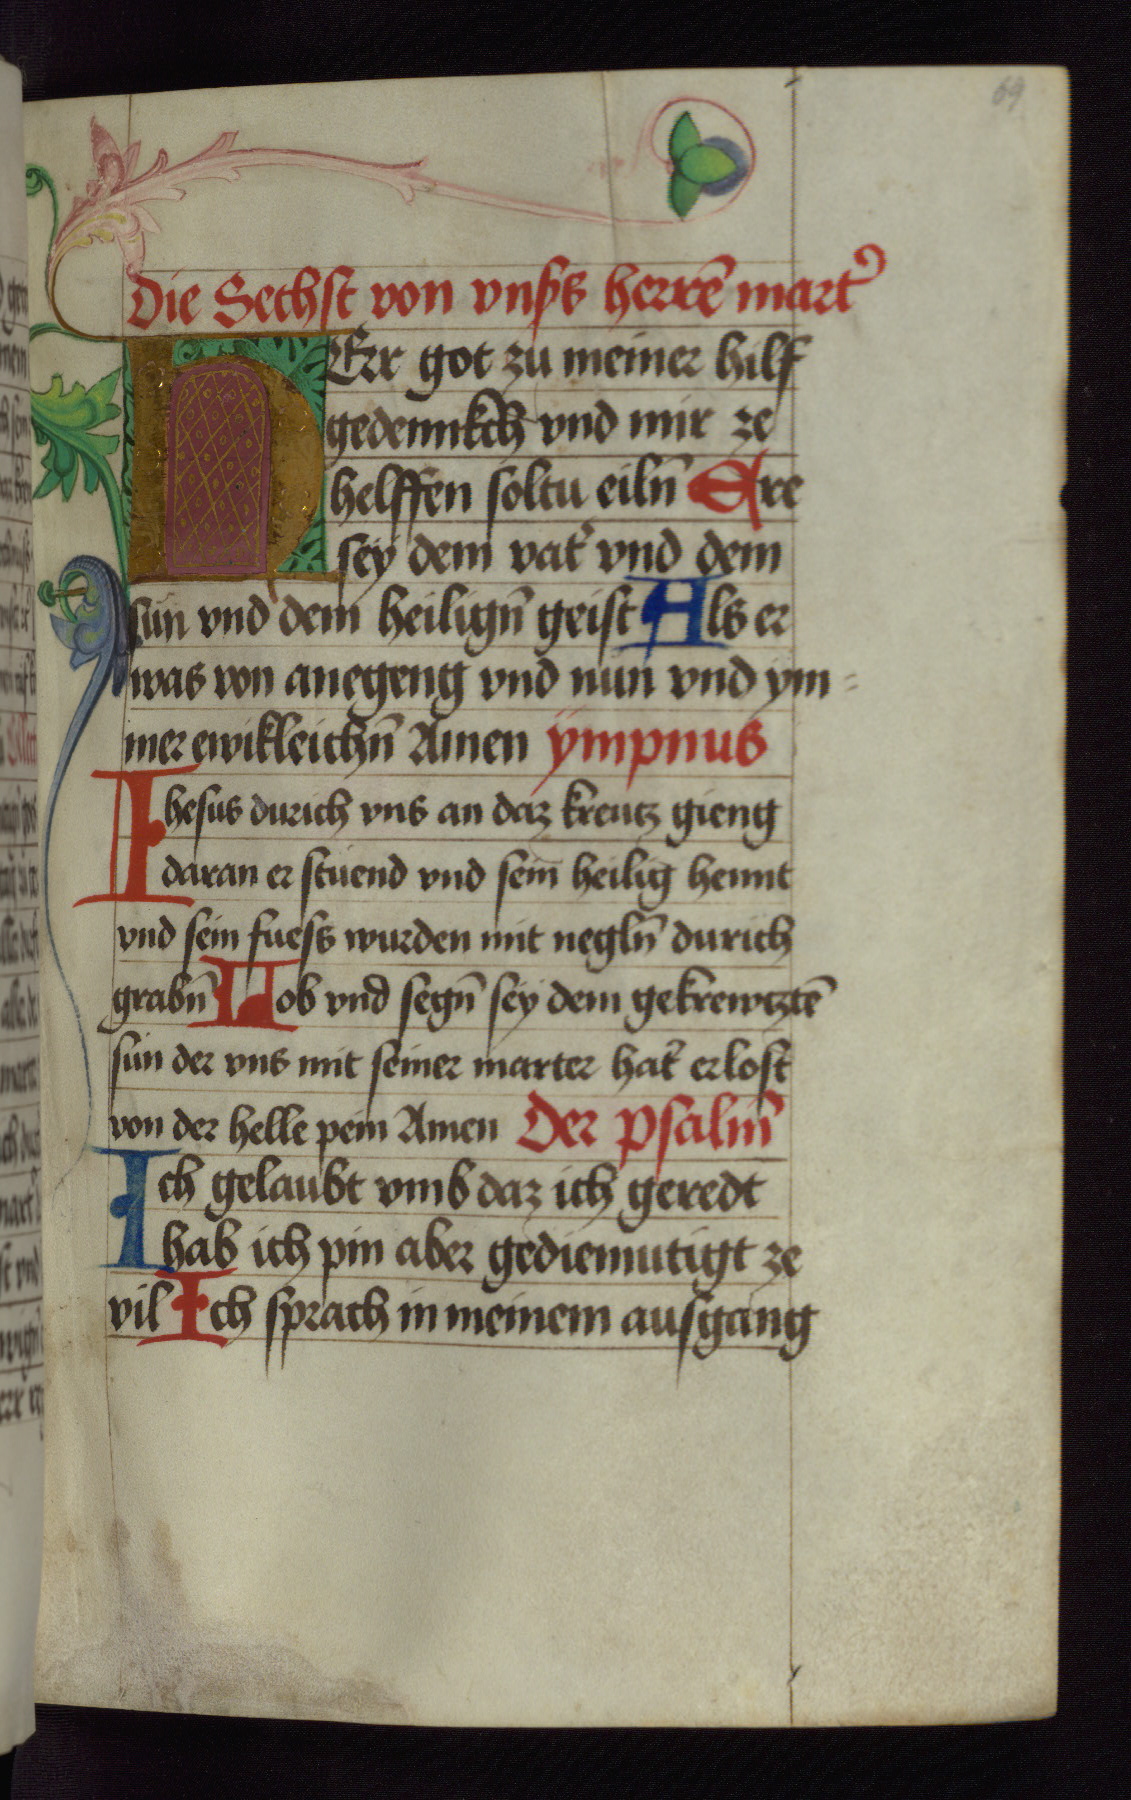 69
Die Sechst von vnsers herrē mart̉
HErr got zu meiner hilf
gedennkch vnd mir ze
helffen soltu eiln̄ Ere
sey dem vat̉ vnd dem
sun vnd dem heilign̄ geist Als er
was von anegeng vnd nun vnd ym=
mer ewikleichn̄ Amen ympnus
Ihesus durich vns an daz kreutz gieng
daran er stuend vnd sein heilig hennt
vnd sein fuess wurden mit negln̄ durich
grabn̄ Lob vnd segn̄ sey dem gekrewtztē
sun der vns mit seiner marter hat erlost
von der helle pein Amen Der psalm̄
Ich gelaubt vmb daz ich geredt
hab ich pin aber gediemutigt ze
vil Ich sprach in meinem ausgang